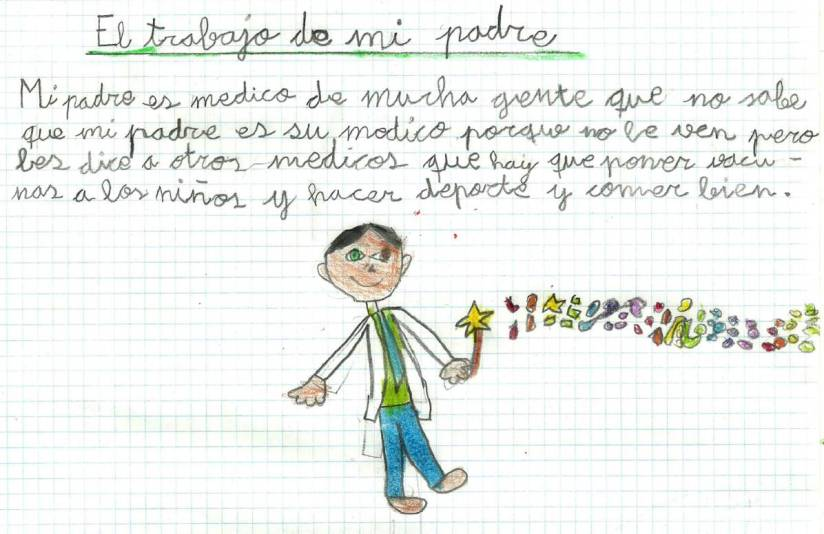 El trabajo de mi padre
Mi padre es medico de mucha gente que no sabe
que mi padre es su modico porque no le ven pero
les dice a otros medicos que hay que poner vacu-
nas a los niños y hacer deporte y comer bien.